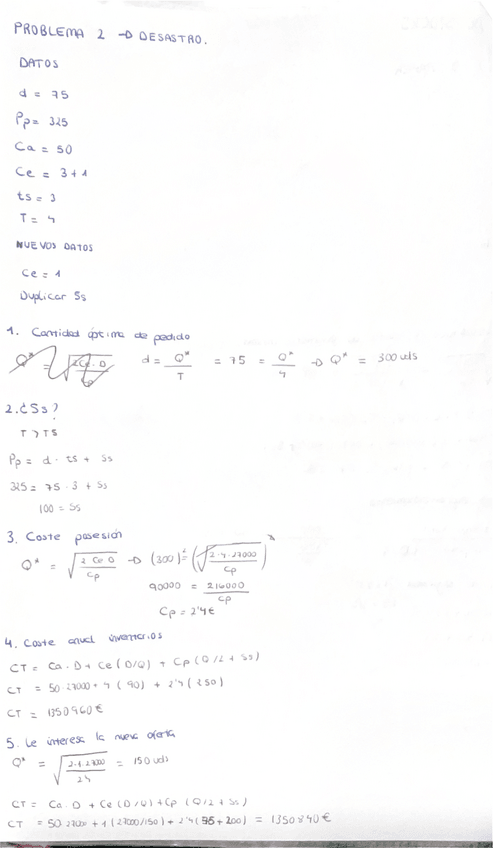 PROBLEMA 2 → DESASTRO.
DATOS
d = 75
Pp = 325
Ca = 50
Ce = 3+1
ts = 3
T = 4
NUEVOS DATOS
Ce = 1
Duplicar Ss
1. Cantidad óptima de pedido
d = Q*/T = 75 = Q*/4 → Q* = 300 uds
2. ¿Ss?
T > TS
Pp = d · ts + Ss
325 = 75 · 3 + Ss
100 = Ss
3. Coste posesión
Q* = √(2 Ce D / Cp) → (300)² = (√(2·4·27000 / Cp))²
90000 = 216000 / Cp
Cp = 2'4€
4. Coste anual inventarios
CT = Ca · D + Ce (D/Q) + Cp (Q/2 + Ss)
CT = 50·27000 + 4 (90) + 2'4 (250)
CT = 1350960€
5. Le interesa la nueva oferta
Q* = √(2·1·27000 / 2'4) = 150 uds
CT = Ca · D + Ce (D/Q) + Cp (Q/2 + Ss)
CT = 50·27000 + 1 (27000/150) + 2'4 ( + 200) = 1350840€